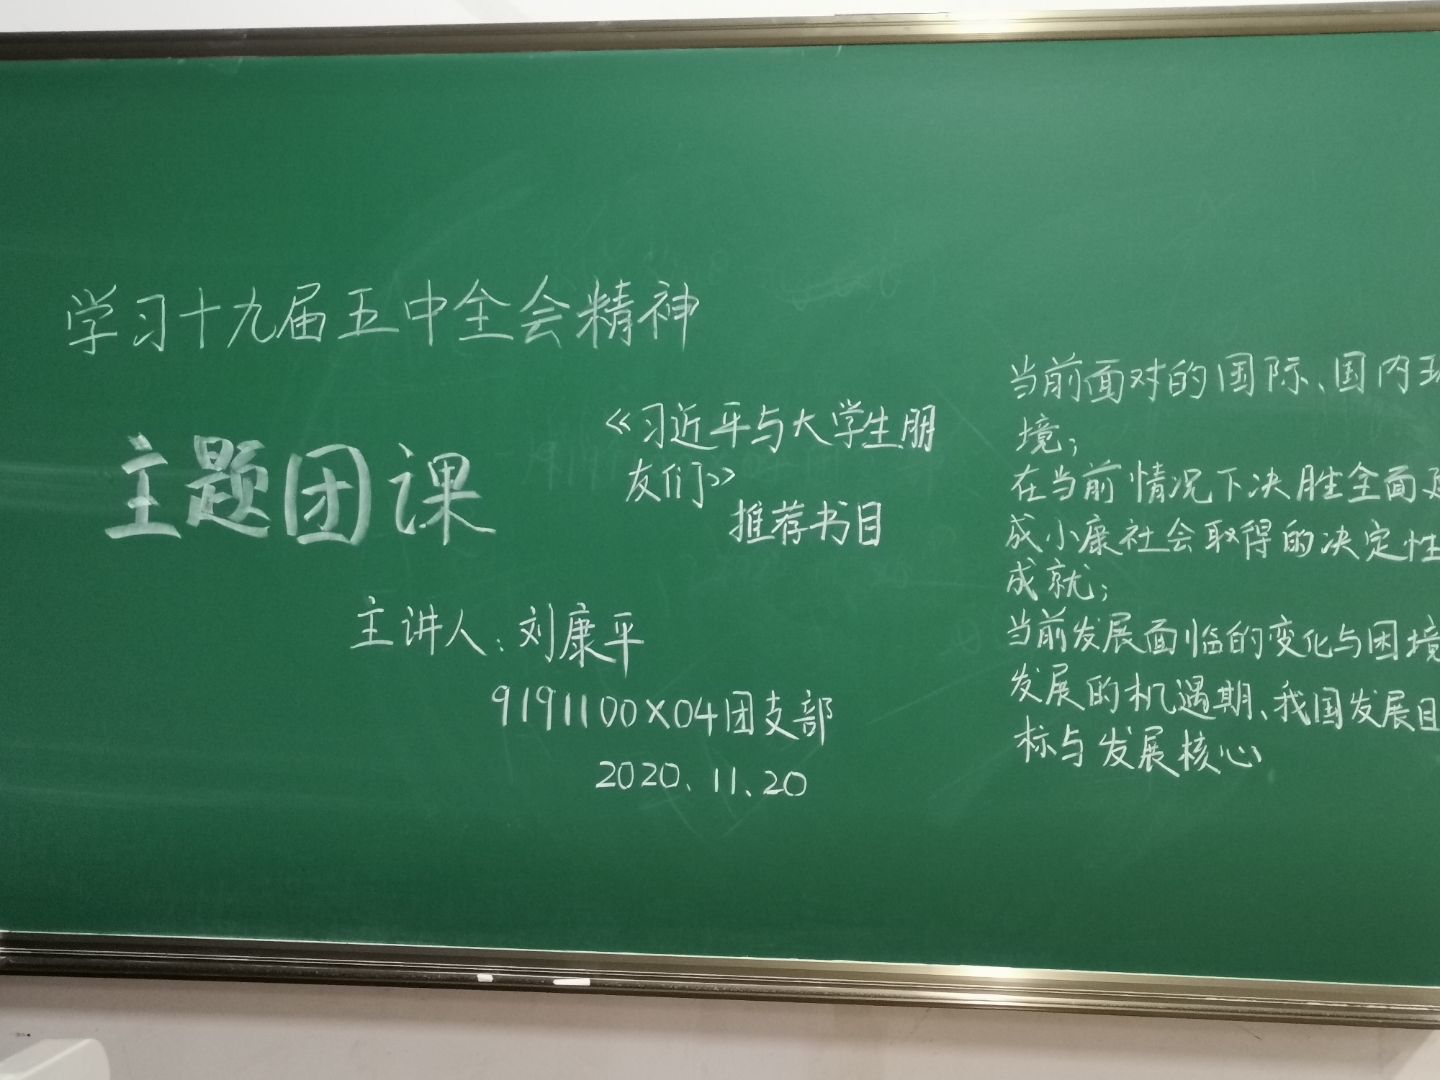 学习十九届五中全会精神
主题团课
《习近平与大学生朋
友们》
推荐书目
主讲人:刘康平
9191100X04团支部
2020.11.20
当前面对的国际、国内环
境;
在当前情况下决胜全面建
成小康社会取得的决定性
成就;
当前发展面临的变化与困境
发展的机遇期、我国发展目
标与发展核心